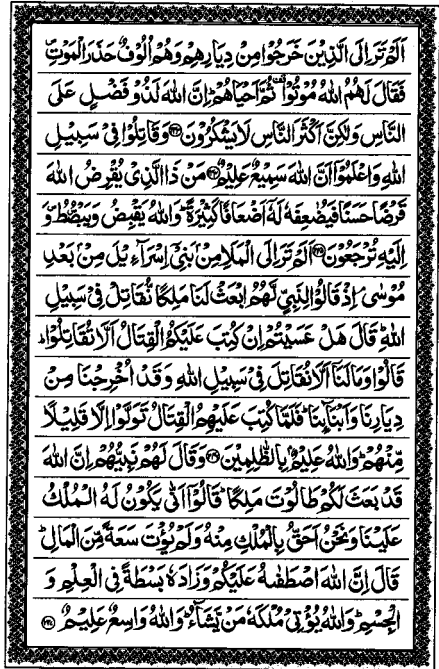 اَلَمْ تَرَ اِلَى الَّذِيْنَ خَرَجُوْا مِنْ دِيَارِهِمْ وَهُمْ اُلُوْفٌ حَذَرَ الْمَوْتِ
فَقَالَ لَهُمُ اللهُ مُوْتُوْا ثُمَّ اَحْيَاهُمْ اِنَّ اللهَ لَذُوْ فَضْلٍ عَلَى
النَّاسِ وَلٰكِنَّ اَكْثَرَ النَّاسِ لَا يَشْكُرُوْنَ وَقَاتِلُوْا فِيْ سَبِيْلِ
اللهِ وَاعْلَمُوْا اَنَّ اللهَ سَمِيْعٌ عَلِيْمٌ مَنْ ذَا الَّذِيْ يُقْرِضُ اللهَ
قَرْضًا حَسَنًا فَيُضٰعِفَهٗ لَهٗ اَضْعَافًا كَثِيْرَةً وَاللهُ يَقْبِضُ وَيَبْصُۜطُ وَ
اِلَيْهِ تُرْجَعُوْنَ اَلَمْ تَرَ اِلَى الْمَلَاِ مِنْ بَنِيْ اِسْرَآءِيْلَ مِنْ بَعْدِ
مُوْسٰى اِذْ قَالُوْا لِنَبِيٍّ لَّهُمُ ابْعَثْ لَنَا مَلِكًا نُّقَاتِلْ فِيْ سَبِيْلِ
اللهِ قَالَ هَلْ عَسَيْتُمْ اِنْ كُتِبَ عَلَيْكُمُ الْقِتَالُ اَلَّا تُقَاتِلُوْا
قَالُوْا وَمَا لَنَا اَلَّا نُقَاتِلَ فِيْ سَبِيْلِ اللهِ وَقَدْ اُخْرِجْنَا مِنْ
دِيَارِنَا وَاَبْنَآئِنَا فَلَمَّا كُتِبَ عَلَيْهِمُ الْقِتَالُ تَوَلَّوْا اِلَّا قَلِيْلًا
مِّنْهُمْ وَاللهُ عَلِيْمٌ بِالظّٰلِمِيْنَ وَقَالَ لَهُمْ نَبِيُّهُمْ اِنَّ اللهَ
قَدْ بَعَثَ لَكُمْ طَالُوْتَ مَلِكًا قَالُوْا اَنّٰى يَكُوْنُ لَهُ الْمُلْكُ
عَلَيْنَا وَنَحْنُ اَحَقُّ بِالْمُلْكِ مِنْهُ وَلَمْ يُؤْتَ سَعَةً مِّنَ الْمَالِ
قَالَ اِنَّ اللهَ اصْطَفٰىهُ عَلَيْكُمْ وَزَادَهٗ بَسْطَةً فِي الْعِلْمِ وَ
الْجِسْمِ وَاللهُ يُؤْتِيْ مُلْكَهٗ مَنْ يَّشَآءُ وَاللهُ وَاسِعٌ عَلِيْمٌ